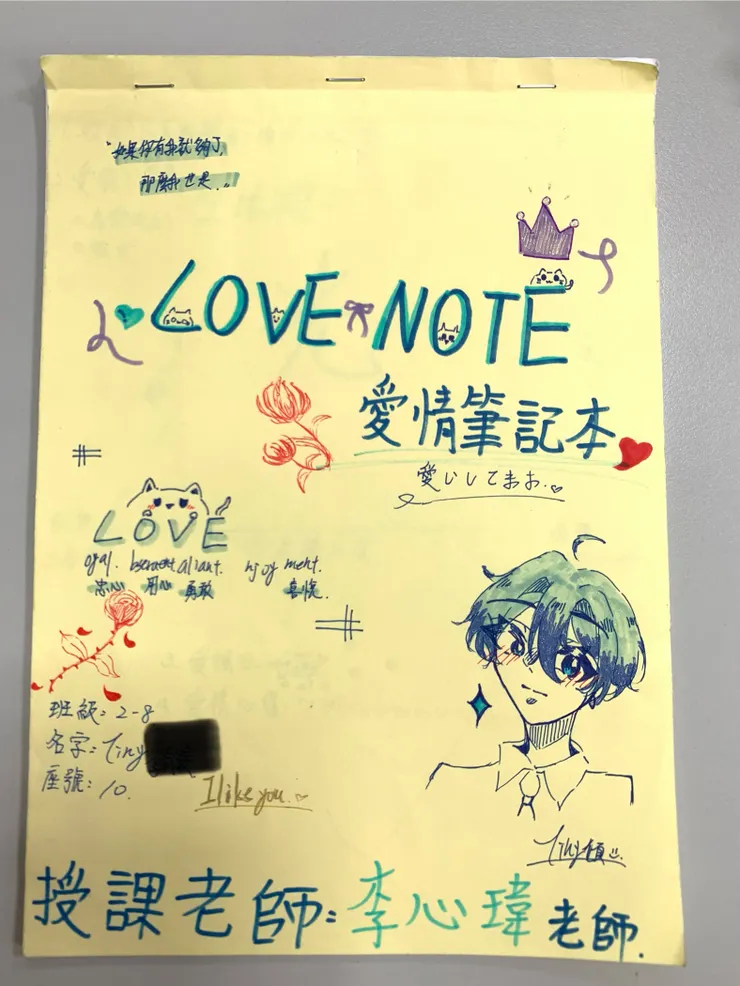 "如果你有我就夠了,
那麼我也是."
LOVE NOTE
愛情筆記本
愛いしてまお.
LOVE
oyal. bservant. aliant. njoy ment.
忠心 用心 勇敢 喜悅
班級: 2-8
名字: Tiny
座號: 10.
I like you.
Tiny
授課老師: 李心瑋老師.